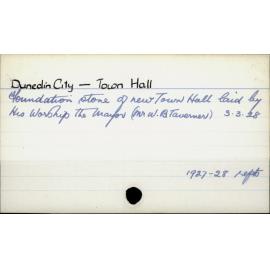 Dunedin City — Town Hall
Foundation stone of new Town Hall laid by
His Worship the Mayor (Mr W. B Taverner) 3-3-28
1927-28